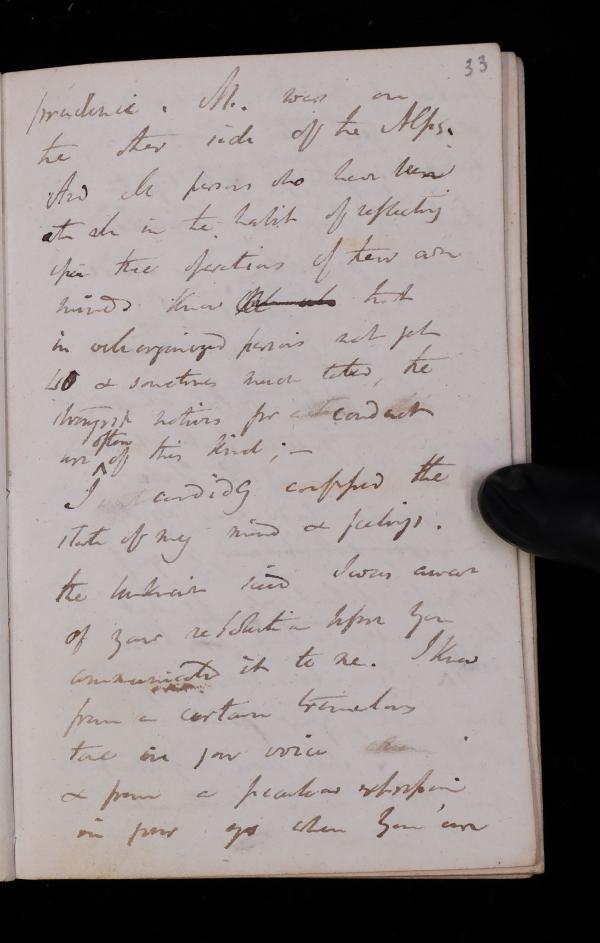 33
prudence. M. was on
the other side of the Alps.
And all persons who have been
at all in the habit of reflecting
upon the operations of their own
minds know that
in well organized persons not yet
40 & sometimes much later, the
strongest motives for conduct
are often of this kind; —
I candidly confessed the
state of my mind & feelings.
the said I was aware
of your resolution before you
communicated it to me. I knew
from a certain tremulous
tone in your voice
& from a peculiar expression
in your eye when you are